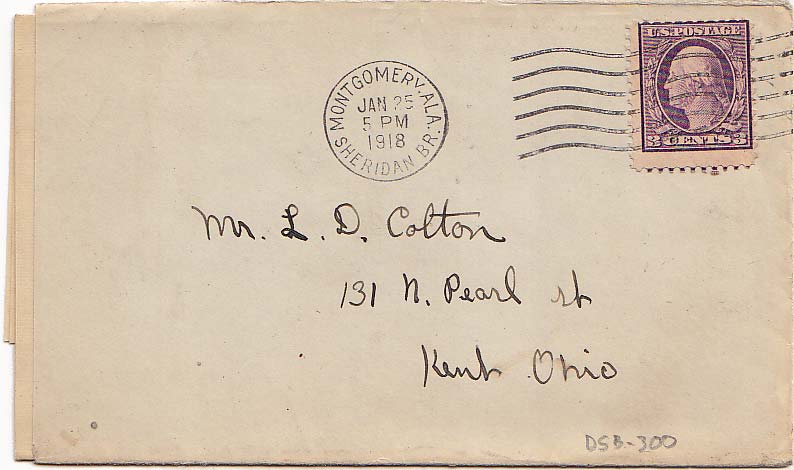 U.S. POSTAGE
3 CENTS 3
MONTGOMERY, ALA.
JAN 25
5 PM
1918
SHERIDAN BR.
Mr. L. D. Colton
131 N. Pearl st
Kent Ohio
DSB-300